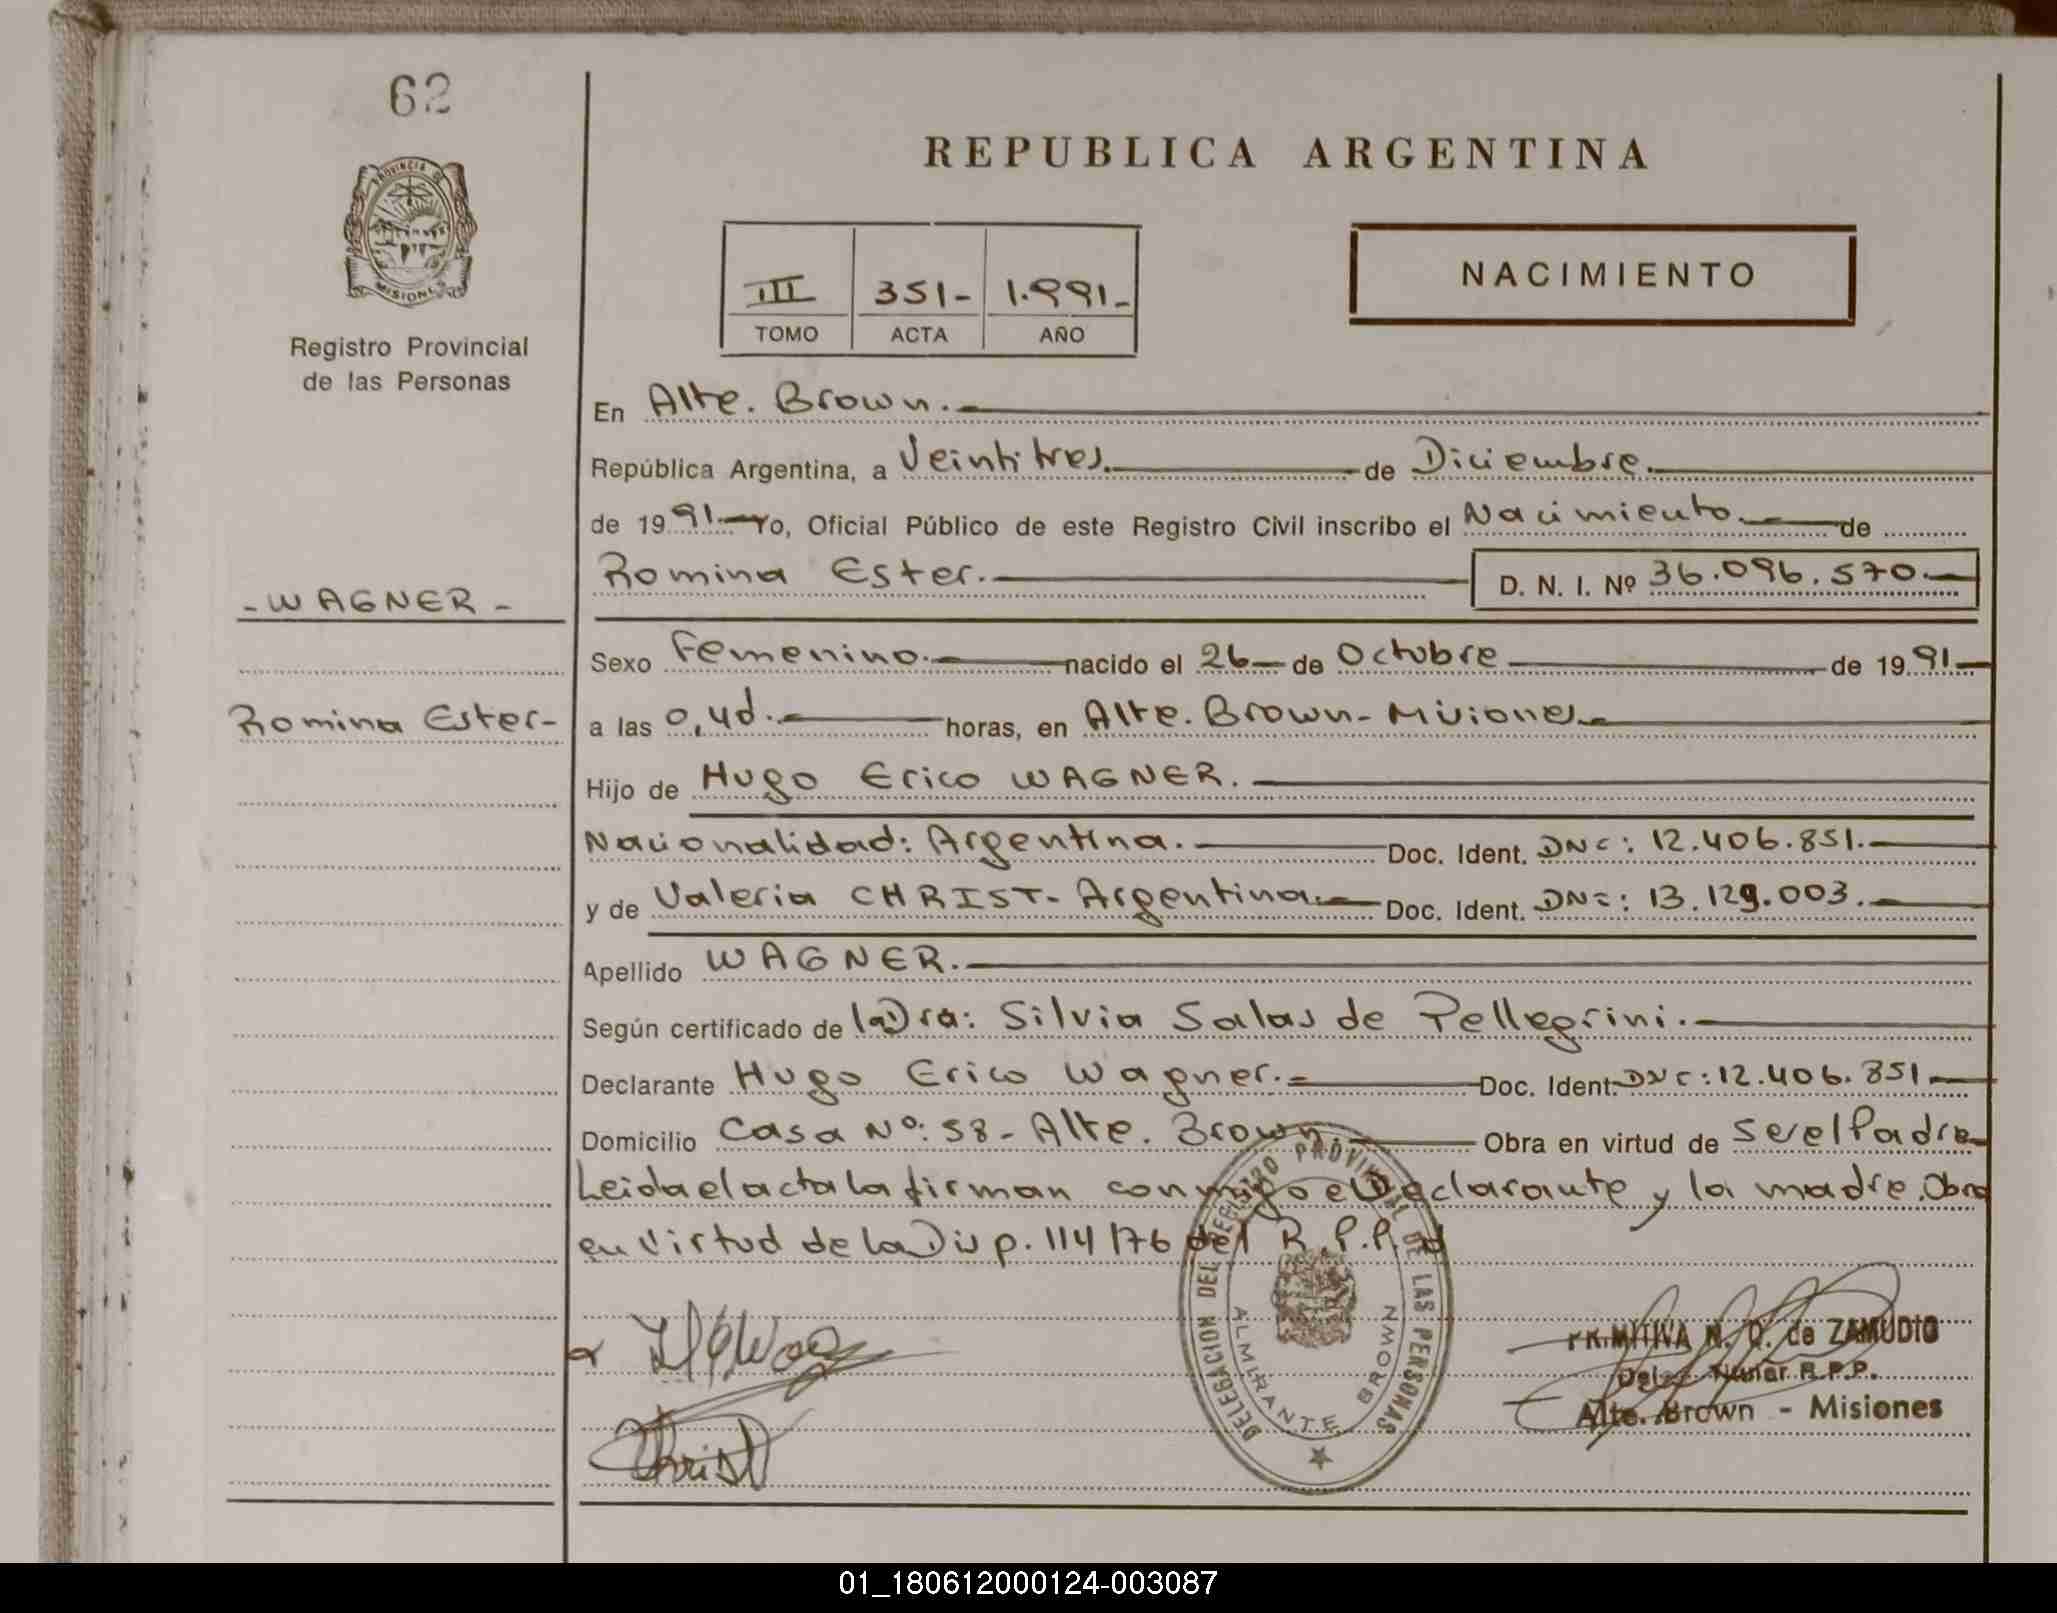 62
REPUBLICA ARGENTINA
PROVINCIA DE
MISIONES
Registro Provincial
de las Personas
III 351- 1.991-
TOMO ACTA AÑO
NACIMIENTO
En Alte. Brown.-
República Argentina, a Veintitres. de Diciembre.
de 19 91.- Yo, Oficial Público de este Registro Civil inscribo el Nacimiento.- de
Romina Ester.- D. N. I. Nº 36.096.570.-
- WAGNER -
Sexo Femenino.- nacido el 26- de Octubre de 19 91.-
Romina Ester-
a las horas, en Alte. Brown-Misiones-
Hijo de Hugo Erico WAGNER.
Nacionalidad: Argentina.- Doc. Ident. 12.406.851.-
y de Valeria CHRIST- Argentina.- Doc. Ident. 13.129.003.-
Apellido WAGNER.-
Según certificado de la Dra: Silvia Salas de Pellegrini.-
Declarante Hugo Erico Wagner.- Doc. Ident. 12.406.851-
Domicilio Casa Nº: 58- Alte. Brown.- Obra en virtud de ser el Padre-
Leida el acta la firman conmigo el Declarante y la madre. Obra
en virtud de la Disp. 114/76 del R.P.P.
DELEGACION DEL REGISTRO PROVINCIAL DE LAS PERSONAS
ALMIRANTE BROWN
Christ
PRIMITIVA N. Q. de ZAMUDIO
Titular R.P.P.
Alte. Brown - Misiones
01_180612000124-003087